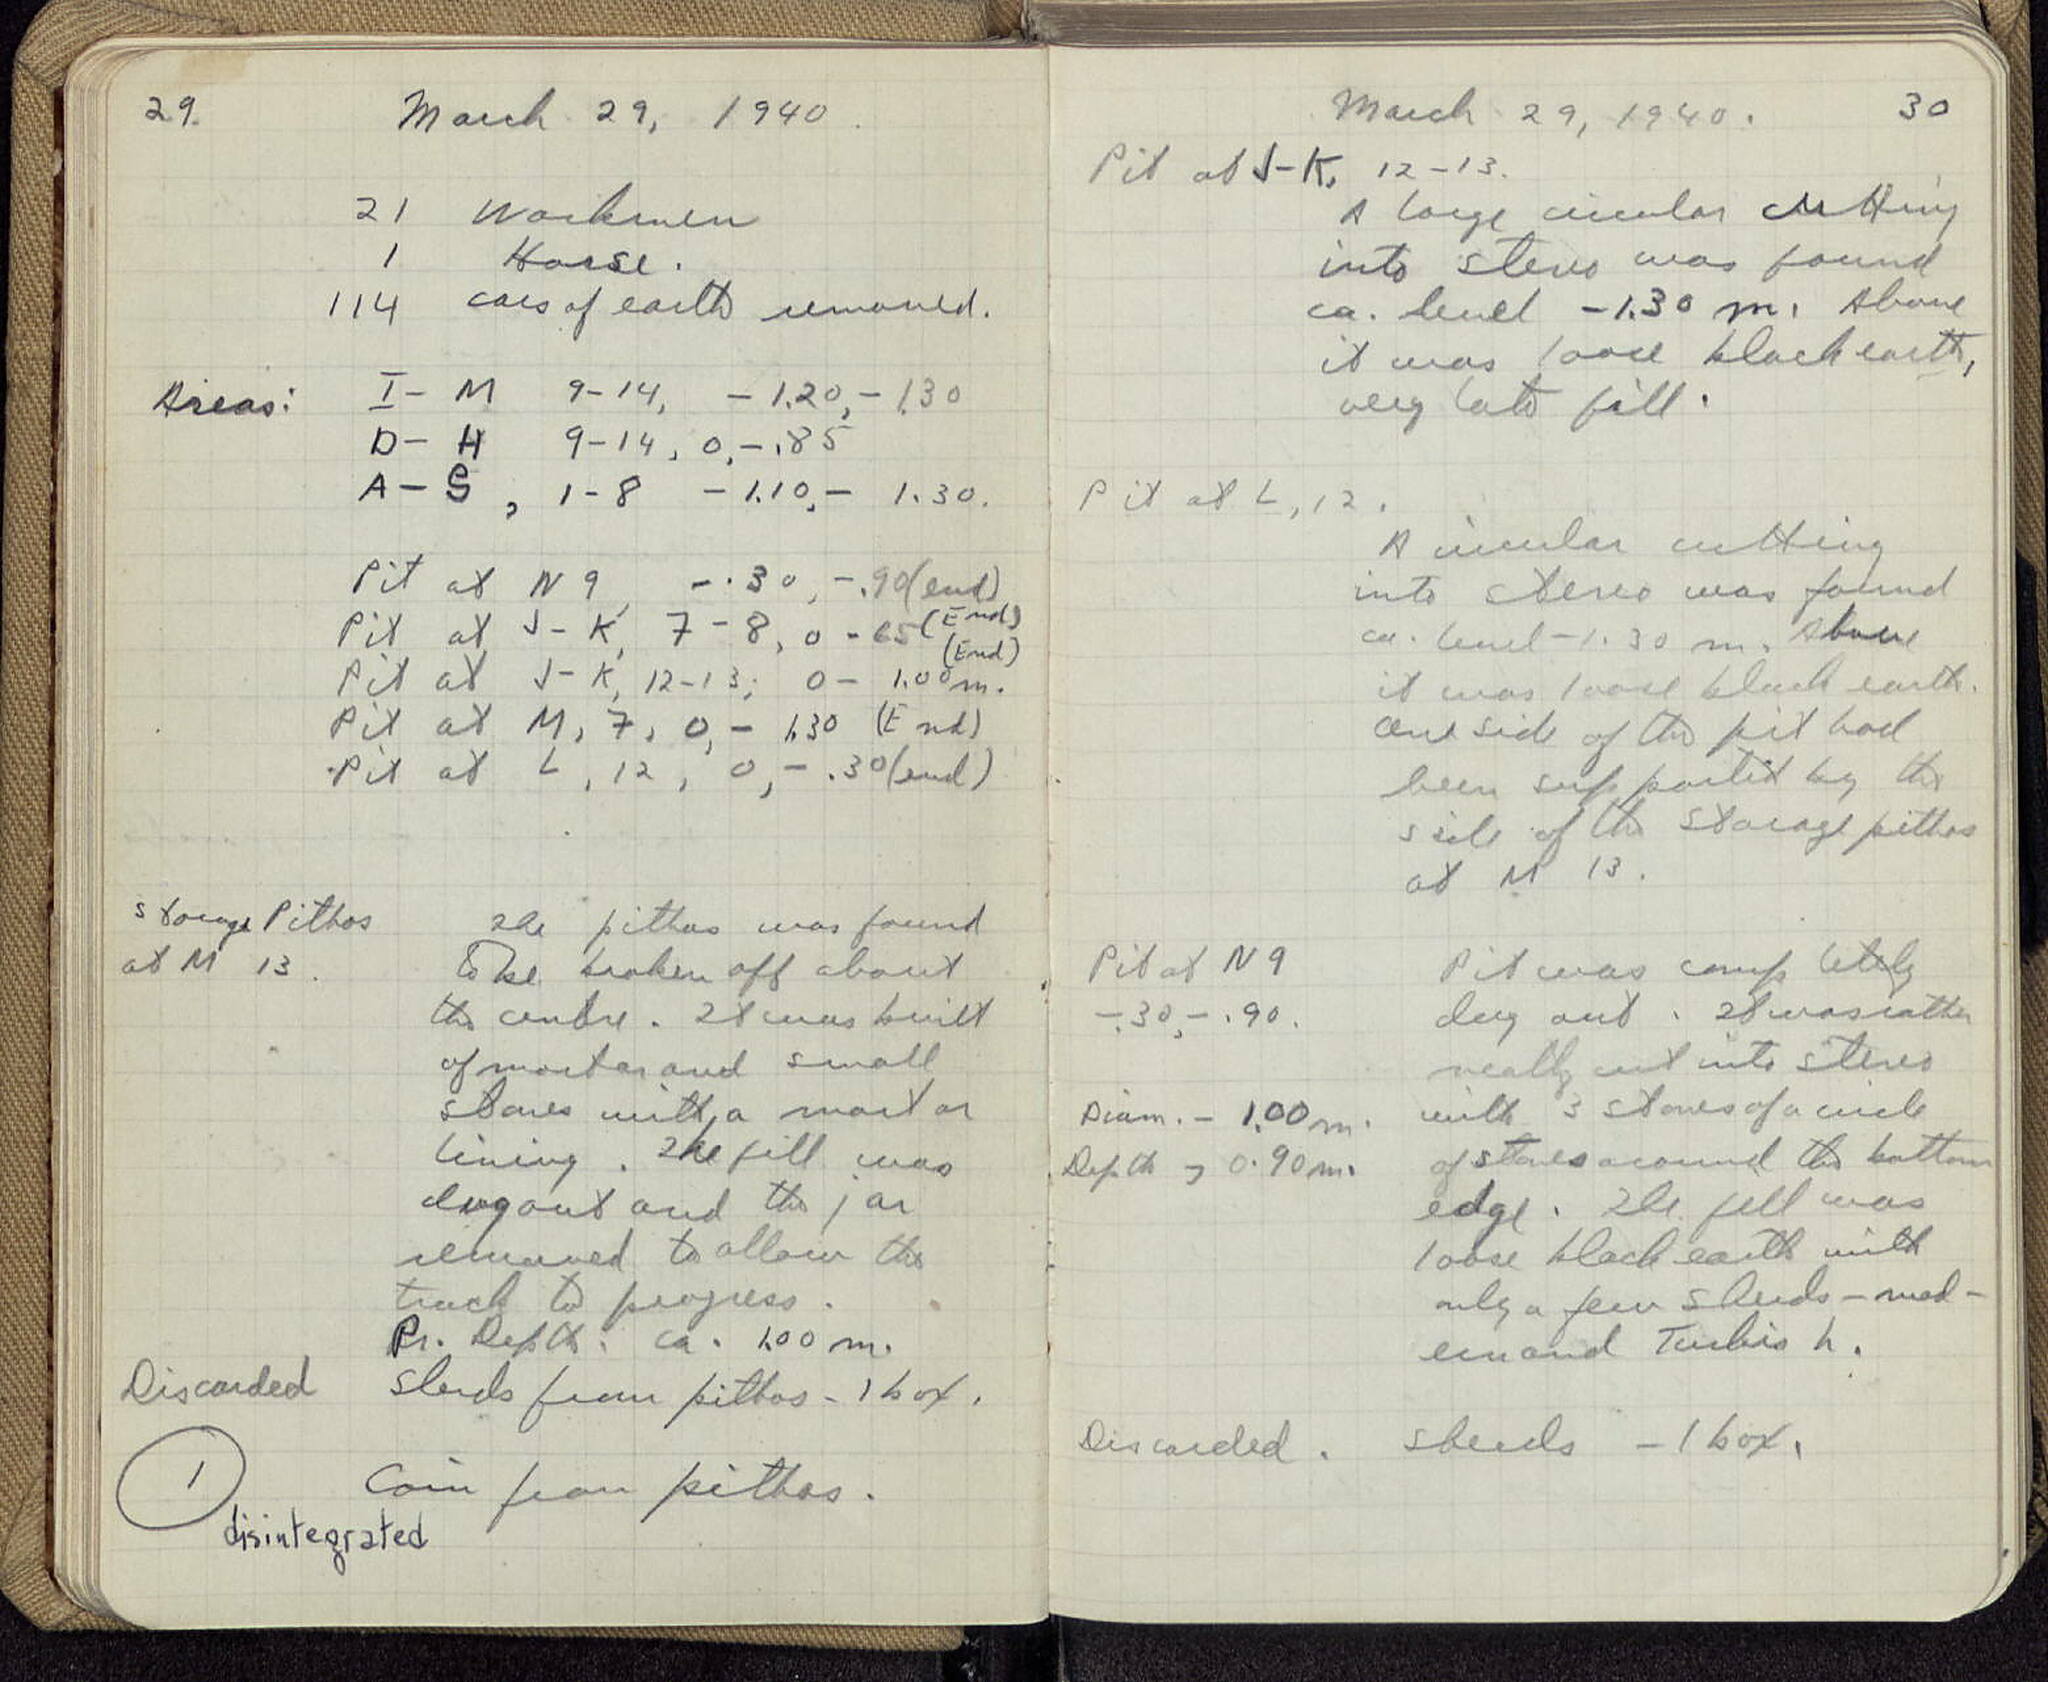 29.
March 29, 1940.
21 Workmen
1 Horse.
114 cars of earth removed.
Areas: I - M 9-14, - 1.20, - 1.30
D - H 9-14, 0, - .85
A - S, 1-8 - 1.10, - 1.30.
Pit at N 9, - .30, - .90 (end)
Pit at J-K, 7-8, 0 - 65 (End)
Pit at J-K, 12-13; 0 - 1.00 m. (End)
Pit at M, 7, 0, - 1.30 (End)
Pit at L, 12, 0, - .30 (end)
Storage Pithos
at M 13.
The pithos was found
to be broken off about
the centre. It was built
of mortar and small
stones with a mortar
lining. The fill was
dug out and the jar
removed to allow the
track to progress.
Pr. Depth. ca. 1.00 m.
Discarded sherds from pithos - 1 box.
1 Coin from pithos.
disintegrated
March 29, 1940. 30
Pit at J-K, 12-13.
A large circular cutting
into stereo was found
ca. level - 1.30 m. Above
it was loose black earth,
very late fill.
Pit at L, 12.
A circular cutting
into stereo was found
ca. level - 1.30 m. Above
it was loose black earth.
One side of the pit had
been supported by the
side of the storage pithos
at M 13.
Pit at N 9
- .30, - .90.
Diam. - 1.00 m.
Depth - 0.90 m.
Pit was completely
dug out. It was rather
neatly cut into stereo
with 3 stones of a circle
of stones around the bottom
edge. The fill was
loose black earth with
only a few sherds - mod-
ern and Turkish.
Discarded. sherds - 1 box.